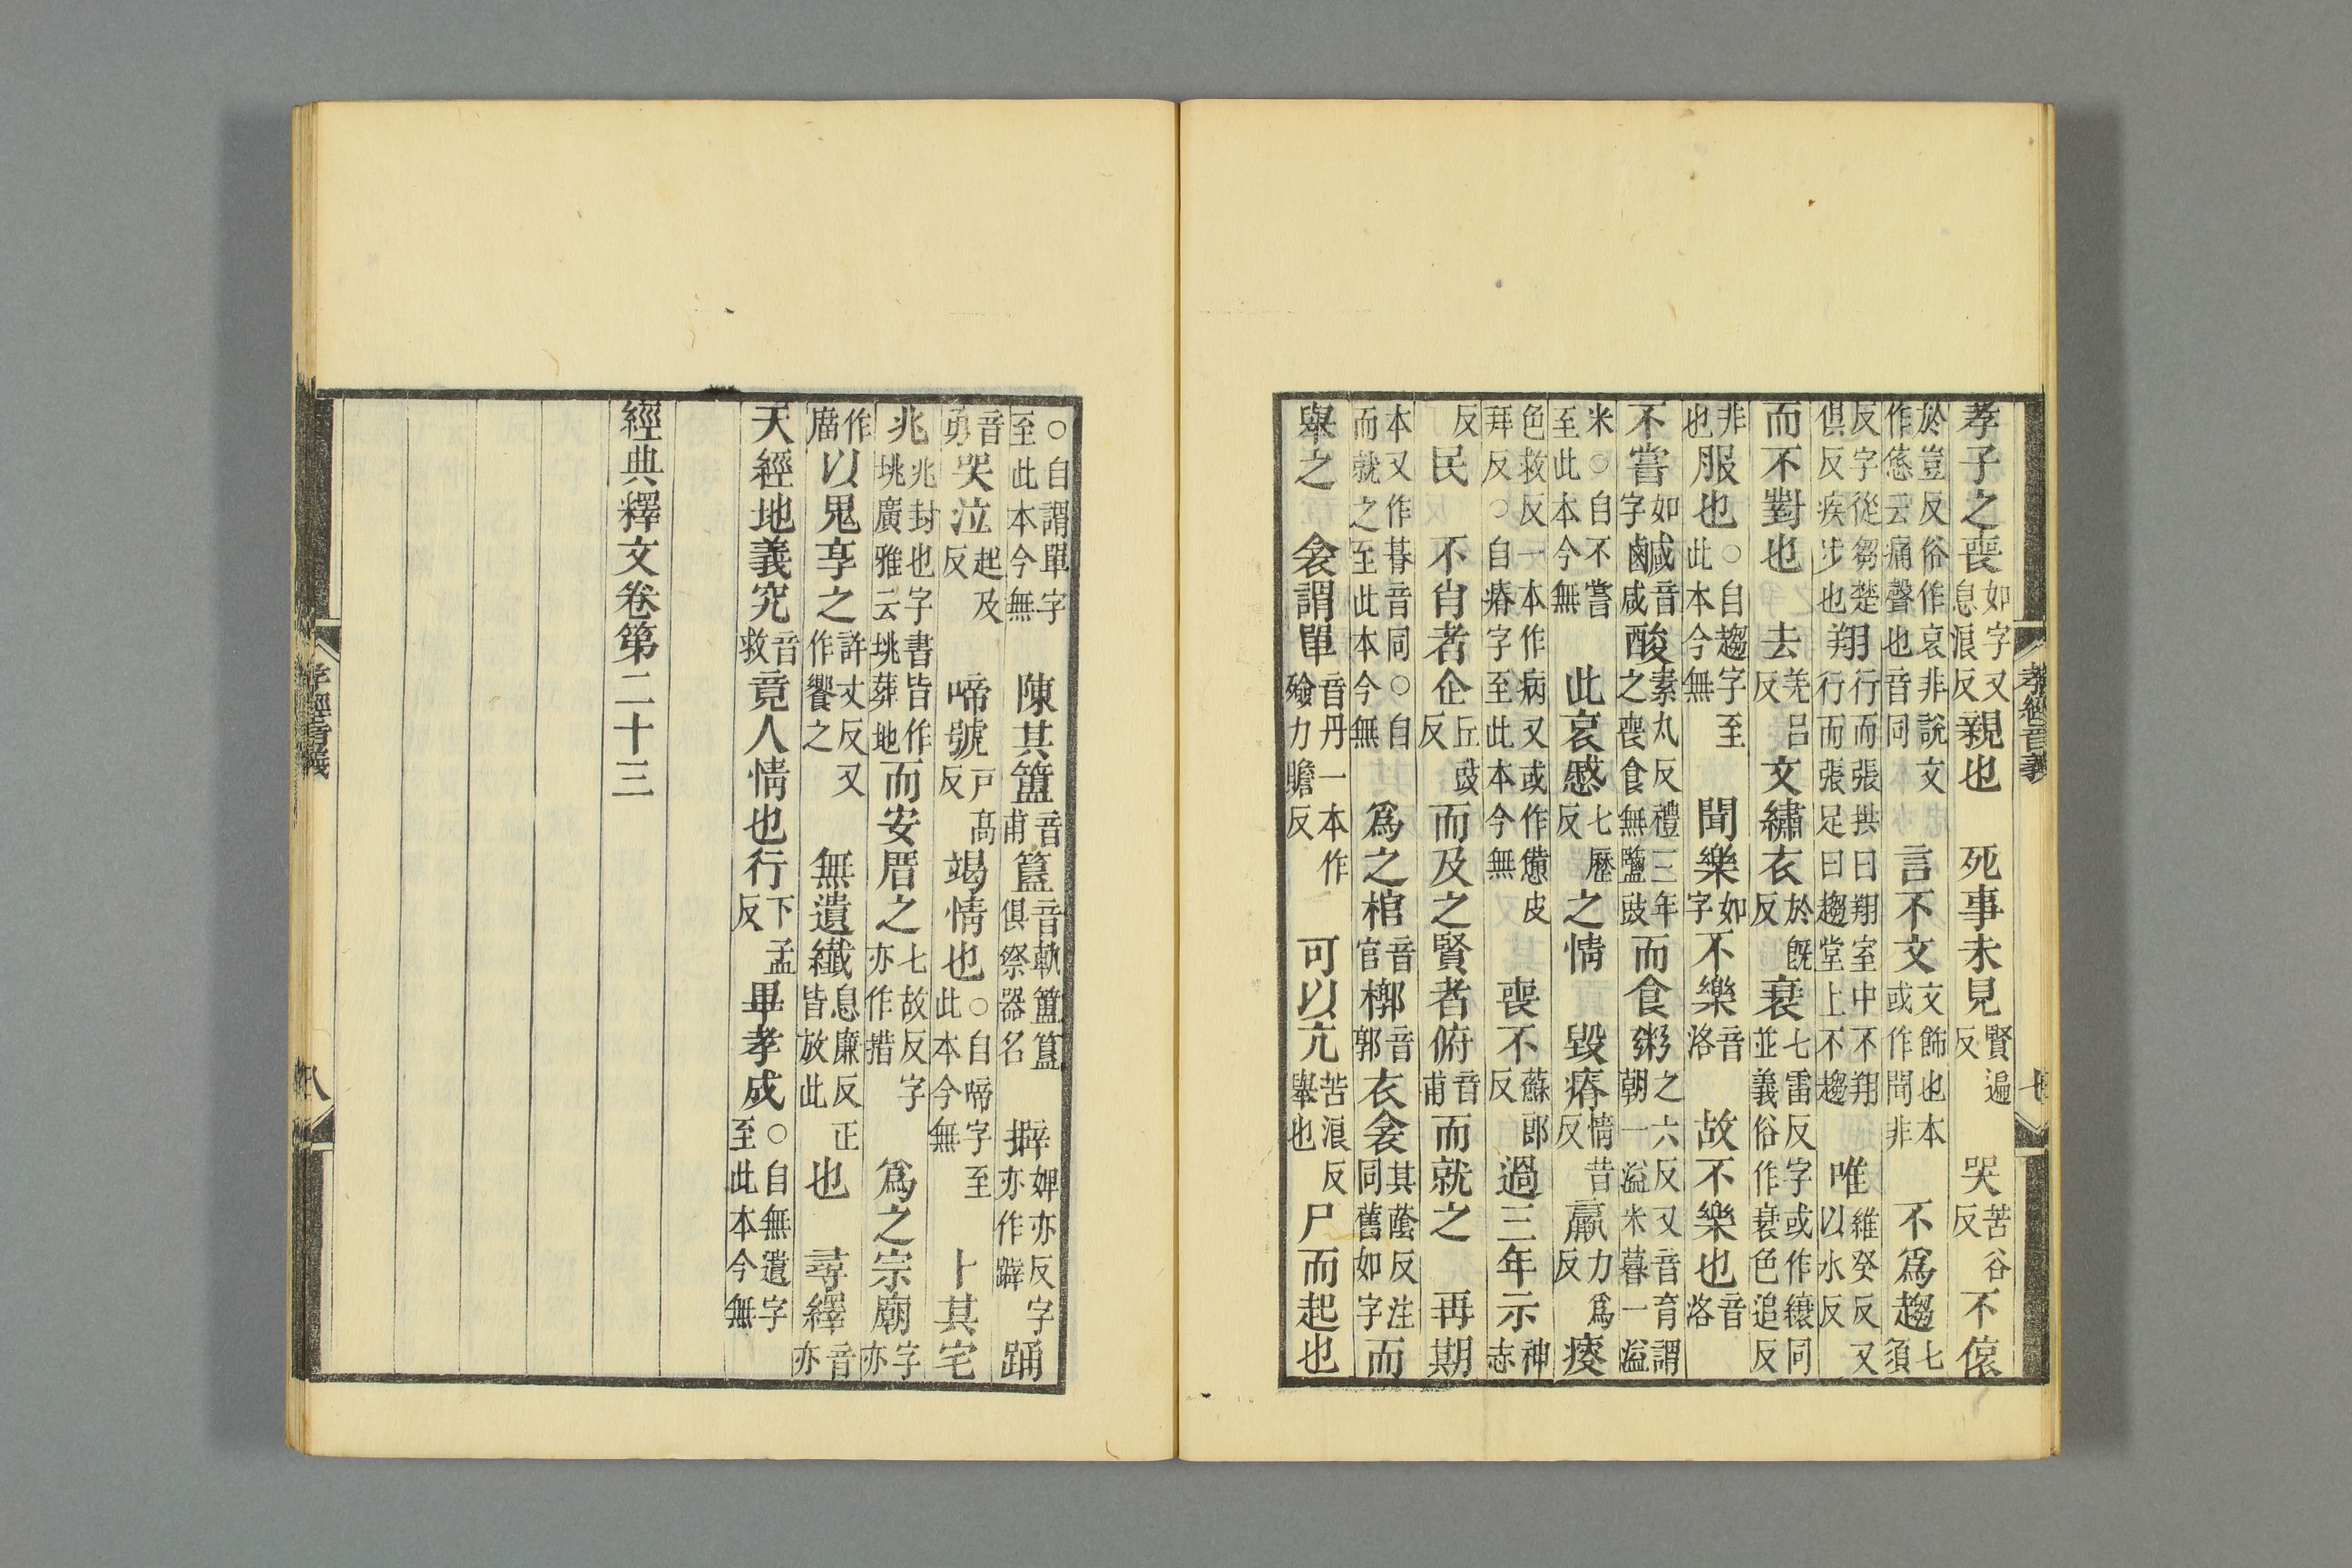 孝經音義
七
孝子之喪如字又息浪反親也 死事未見賢遍反 哭苦谷反不偯
於豈反俗作哀非說文作㥋云痛聲也音同 言不文文飾也本或作閒非 不爲趨七須
反字從芻楚俱反疾步也翔行而張拱曰翔室中不翔行而張足曰趨堂上不趨 唯維癸反又以水反
而不對也 去羌呂反文繡衣於旣反 衰七雷反字或作縗同並義俗作衰色追反
非也服也○自趨字至此本今無 聞樂如字不樂音洛 故不樂也音洛
不嘗如字鹹音咸鹵酸素丸反禮三年之喪食無鹽豉而食粥之六反又音育謂朝一溢米暮一溢
米○自不嘗至此本今無 此哀慼七歷反之情 毀瘠情昔反羸力爲反痩
色救反一本作病又或作憊皮拜反○自瘠字至此本今無 喪不蘇郎反過三年示神志
反民 不肖者企丘豉反而及之賢者俯音甫而就之 再期
本又作朞音同○自而就之至此本今無 爲之棺音官槨音郭衣衾其蔭反注同舊如字而
舉之 衾謂單音丹一本作殮力贍反 可以亢苦浪反舉也尸而起也
○自謂單字至此本今無 陳其簠音甫簋音軌簠簋俱祭器名 擗婢亦反字亦作躃踊
音勇哭泣起及反 啼號戸髙反竭情也○自啼字至此本今無 卜其宅
兆兆封也字書皆作垗廣雅云垗葬地而安厝之七故反字亦作措 爲之宗廟字亦
作庿以鬼享之許丈反又作饗之 無遺纎息廉反正皆放此也 尋繹音亦
天經地義究音救竟人情也行下孟反畢孝成○自無遺字至此本今無
經典釋文卷第二十三
孝經音義
八